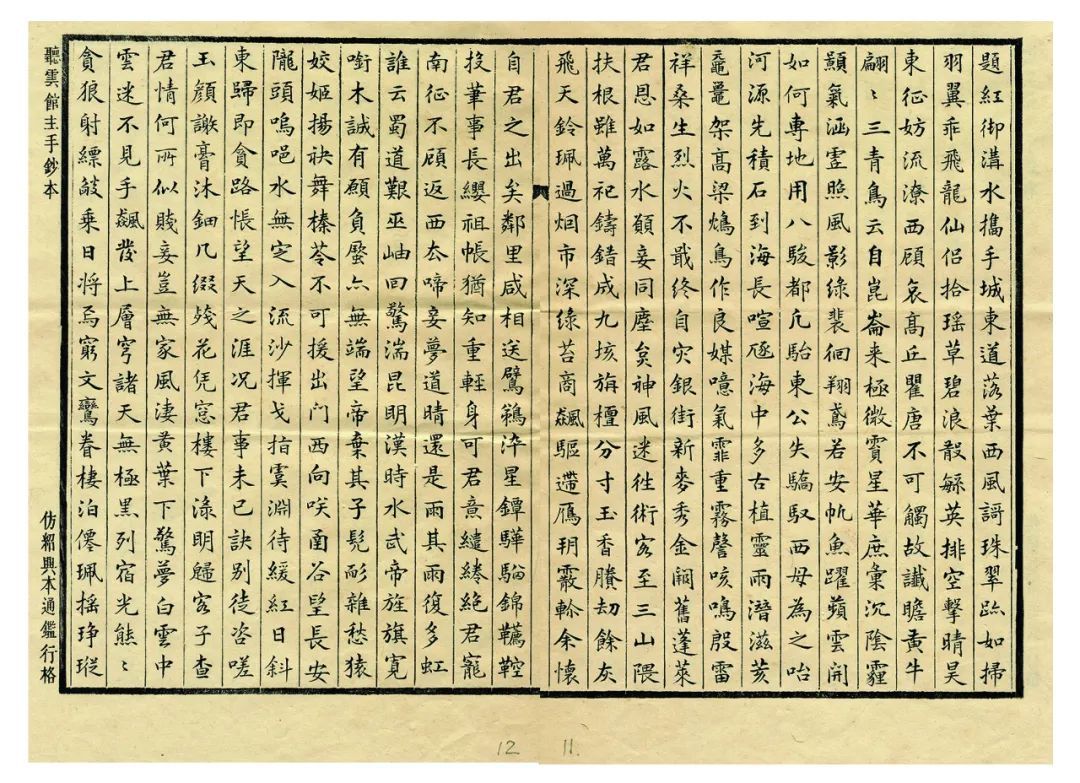 題紅御溝水攜手城東道落葉西風謌珠翠跡如掃
羽翼乖飛龍仙侶拾瑤草碧浪英排空擊晴昊
東征妨流潦西顧哀高丘瞿唐不可觸故讖瞻黄牛
翩〻三青鳥云自崑崙来極微賓星華庶彙沉陰霾
顥氣涵霊照風影綠裴徊翔鳶若安帆魚躍蘋雲開
如何專地用八駿都凡駘東公失驕馭西母為之咍
河源先積石到海長喧豗海中多古植靈雨潛滋荄
黿鼉架髙梁鴆鳥作良媒噫氣霏重霧謦咳鳴殷雷
祥桑生烈火不戢終自灾銀街新麥秀金闕舊蓬萊
君恩如露水顛妾同塵炱神風迷徃術客至三山隈
扶根雖萬祀鑄錯成九垓旃檀分寸玉香賸劫餘灰
飛天鈴珮過烟市深綠苔商飆驅遰鴈玥霰軫余懐
自君之出矣鄰里咸相送鷿鵜淬星鐔驊騮錦韉鞚
投筆事長纓祖帳猶知重輕身可君意繾綣絕君寵
南征不顧返西去啼妾夢道晴還是雨其雨復多虹
誰云蜀道艱巫岫回驚湍昆明漢時水武帝旌旗寬
銜木誠有願負蜃六無端望帝棄其子髡耏雜愁猿
姣姬揚袂舞榛苓不可援出门西向咲函谷望長安
隴頭嗚咽水無定入流沙揮戈指虞淵待緩紅日斜
東歸即貪路悵望天之涯况君事未已訣別徒咨嗟
玉顏謝膏沐鈿几綴殘花凭窓樓下淥明歸客子查
君情何所似賤妾豈無家風淒黄葉下驚夢白雲中
雲迷不見手飆發上層穹諸天無極黑列宿光熊〻
貪狼射縹燄乘日将焉窮文鸞眷棲泊僊珮摇琤瑽
聽雲館主手鈔本
仿紹興本通鑑行格
12
11.